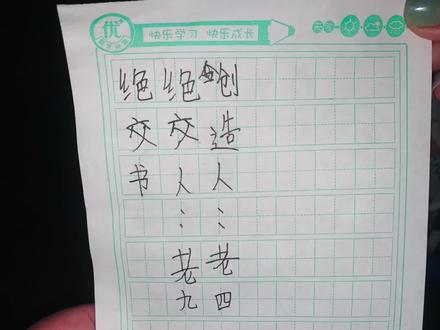 优
快乐学习 快乐成长
绝交书
绝交人：老九
创造人：老四